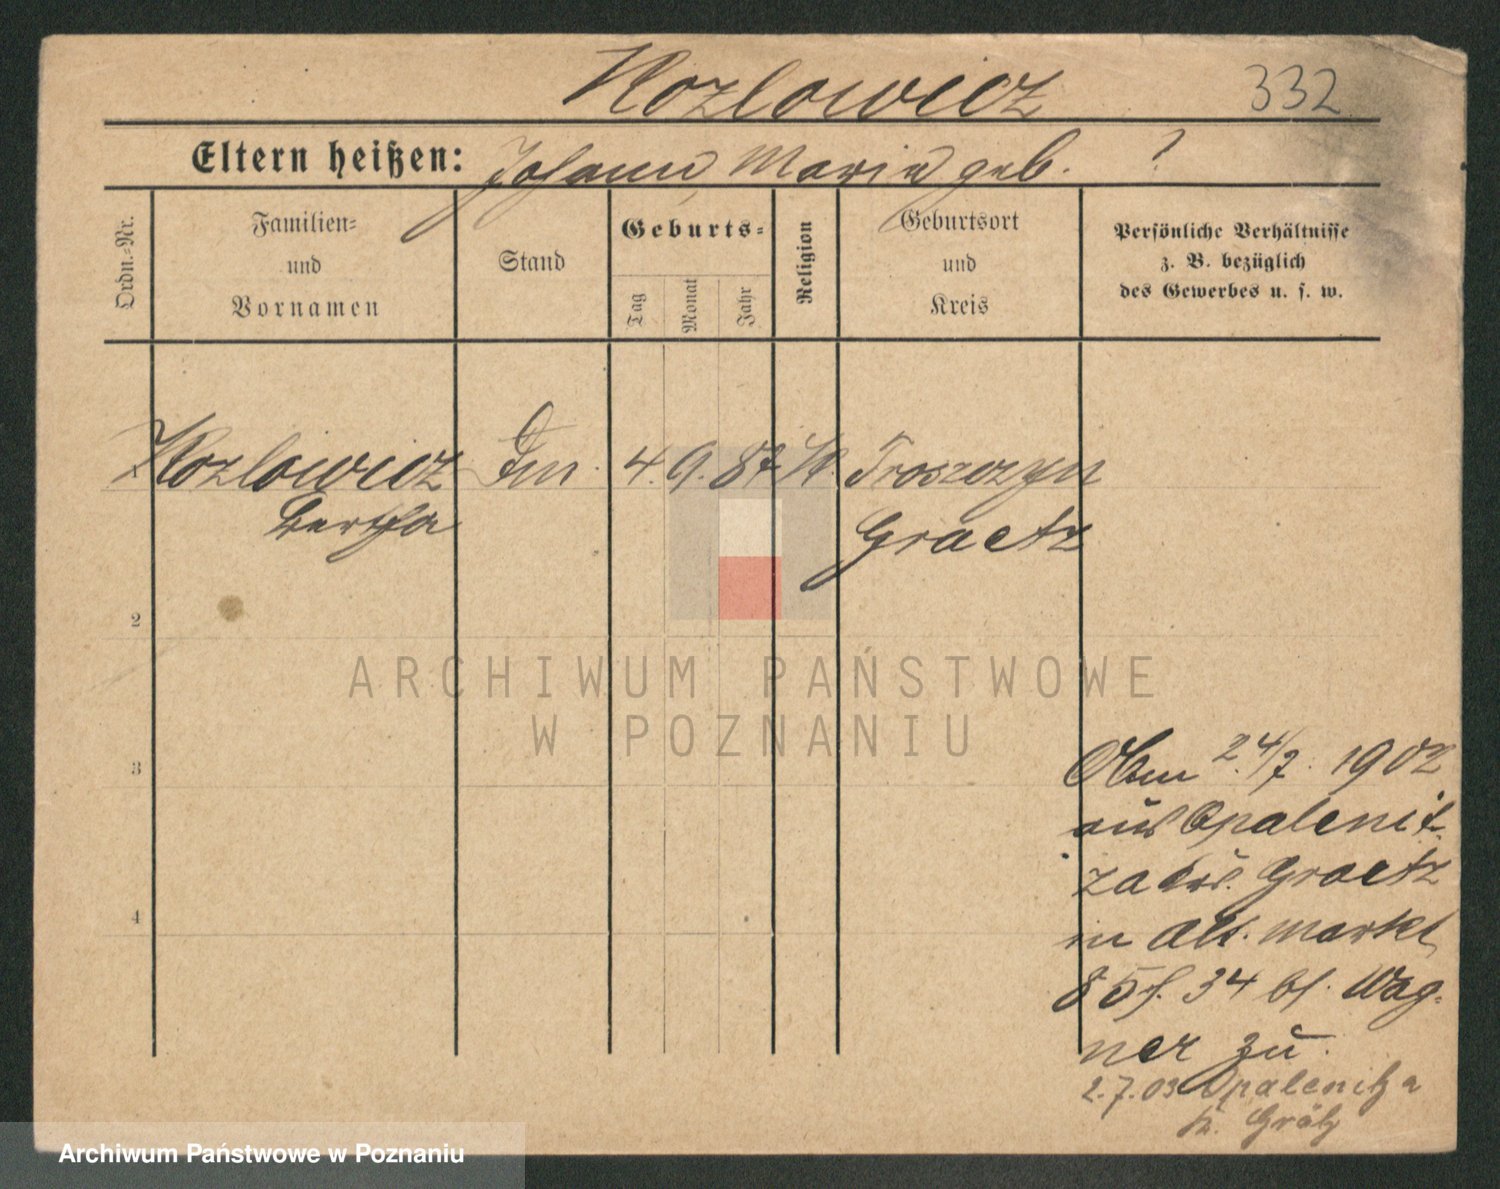 Kozlowicz 332
Eltern heißen: Johann Maria geb. ?
Ordn.-Nr.
Familien-
und
Vornamen
Stand
Geburts-
Tag
Monat
Jahr
Religion
Geburtsort
und
Kreis
Persönliche Verhältnisse
z. B. bezüglich
des Gewerbes u. s. w.
1 Kozlowicz 4. 9. 87 K. Troszczyn
Bertha Graetz
2
3
4
ARCHIWUM PAŃSTWOWE
W POZNANIU
24/7. 1902
aus Opalenit-
za Krs. Graetz
in Alt. Markt
85 f. 34 bf. Wag-
ner zu.
2.7.03 Opalenitza
K. Grätz
Archiwum Państwowe w Poznaniu